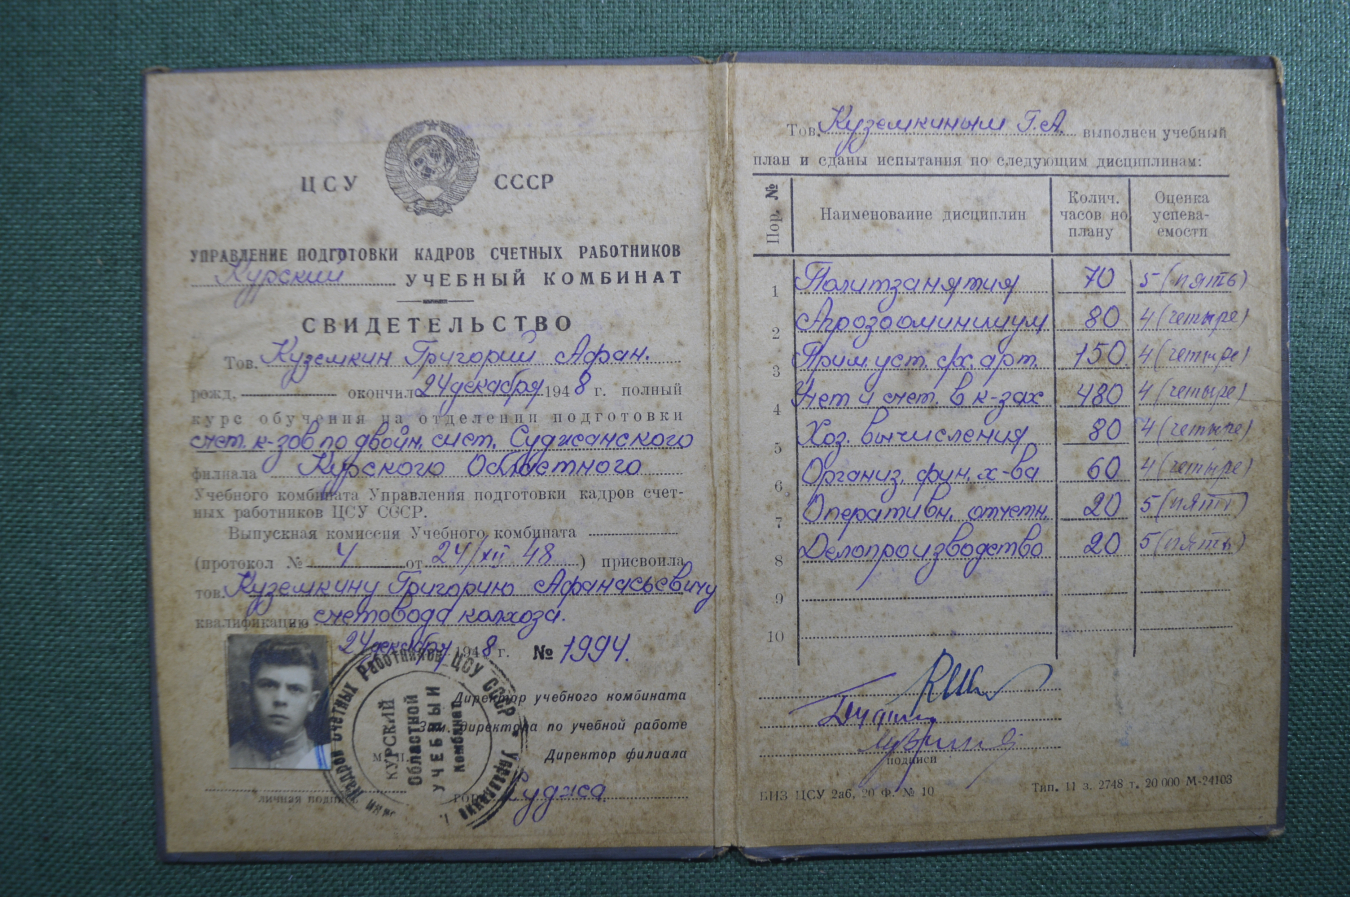 ЦСУ СССР
УПРАВЛЕНИЕ ПОДГОТОВКИ КАДРОВ СЧЕТНЫХ РАБОТНИКОВ
Курский УЧЕБНЫЙ КОМБИНАТ
СВИДЕТЕЛЬСТВО
Тов. Куземкин Григорий Афан.
рожд. окончил 24 декабря 1948 г. полный
курс обучения на отделении подготовки
счет. к-зов по двойн. сист. Суджанского
филиала Курского Областного
Учебного комбината Управления подготовки кадров счет-
ных работников ЦСУ СССР.
Выпускная комиссия Учебного комбината
(протокол № 4 от 24/XII 48) присвоила
тов. Куземкину Григорию Афанасьевичу
квалификацию счетовода колхоза.
24 декабря 1948 г. № 1994.
Директор учебного комбината
Зам. директора по учебной работе
М. П. Директор филиала
личная подпись гор. Суджа
КУРСКИЙ
Областной
УЧЕБНЫЙ
Комбинат
Тов. Куземкиным Г.А. выполнен учебный
план и сданы испытания по следующим дисциплинам:
Пор. № Наименование дисциплин Колич. часов по плану Оценка успева-емости
1 Политзанятия 70 5 (пять)
2 Агрозооминимум 80 4 (четыре)
3 Прим. уст. с/х. арт. 150 4 (четыре)
4 Учет и счет. в к-зах 480 4 (четыре)
5 Хоз. вычисления 80 4 (четыре)
6 Организ. фин. х-ва 60 4 (четыре)
7 Оперативн. отчетн. 20 5 (пять)
8 Делопроизводство 20 5 (пять)
9
10
подписи
БНЗ ЦСУ 2аб. 20 Ф. № 10 Тип. 11 з. 2748 т. 20 000 М-24103